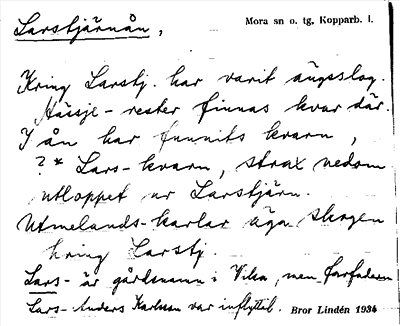 Larstjärnån,
Mora sn o. tg, Kopparb. l.
Kring Larstj. har varit ängsslog.
Hässje-rester finnas kvar där.
I ån har funnits kvarn,
? * Lars-kvarn, strax nedom
utloppet ur Larstjärn.
Utmelands-karlar äga skogen
kring Larstj.
Lars- är gårdsnamn i Vika, men forfadern
Lars-Anders Karlsson var inflyttd. Bror Lindén 1934